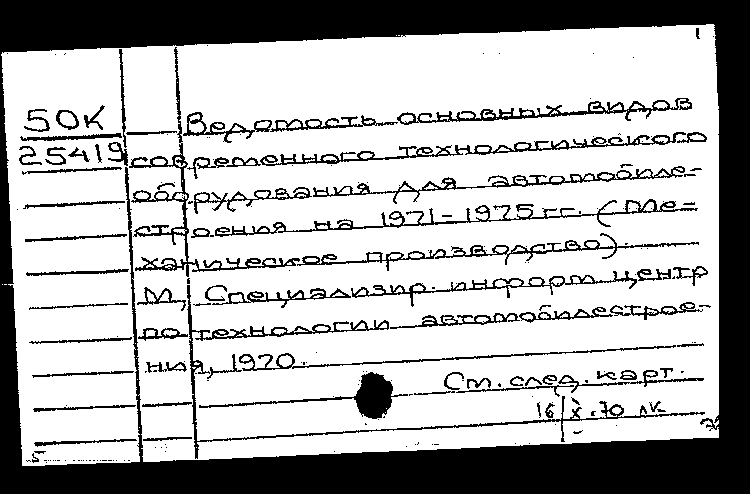 1
50К
25419
Ведомость основных видов
современного технологического
оборудования для автомобиле-
строения на 1971-1975 гг. (Ме=
ханическое производство).
М, Специализир. информ. центр
по технологии автомобилестрое-
ния, 1970.
См. след. карт.
16/X.70